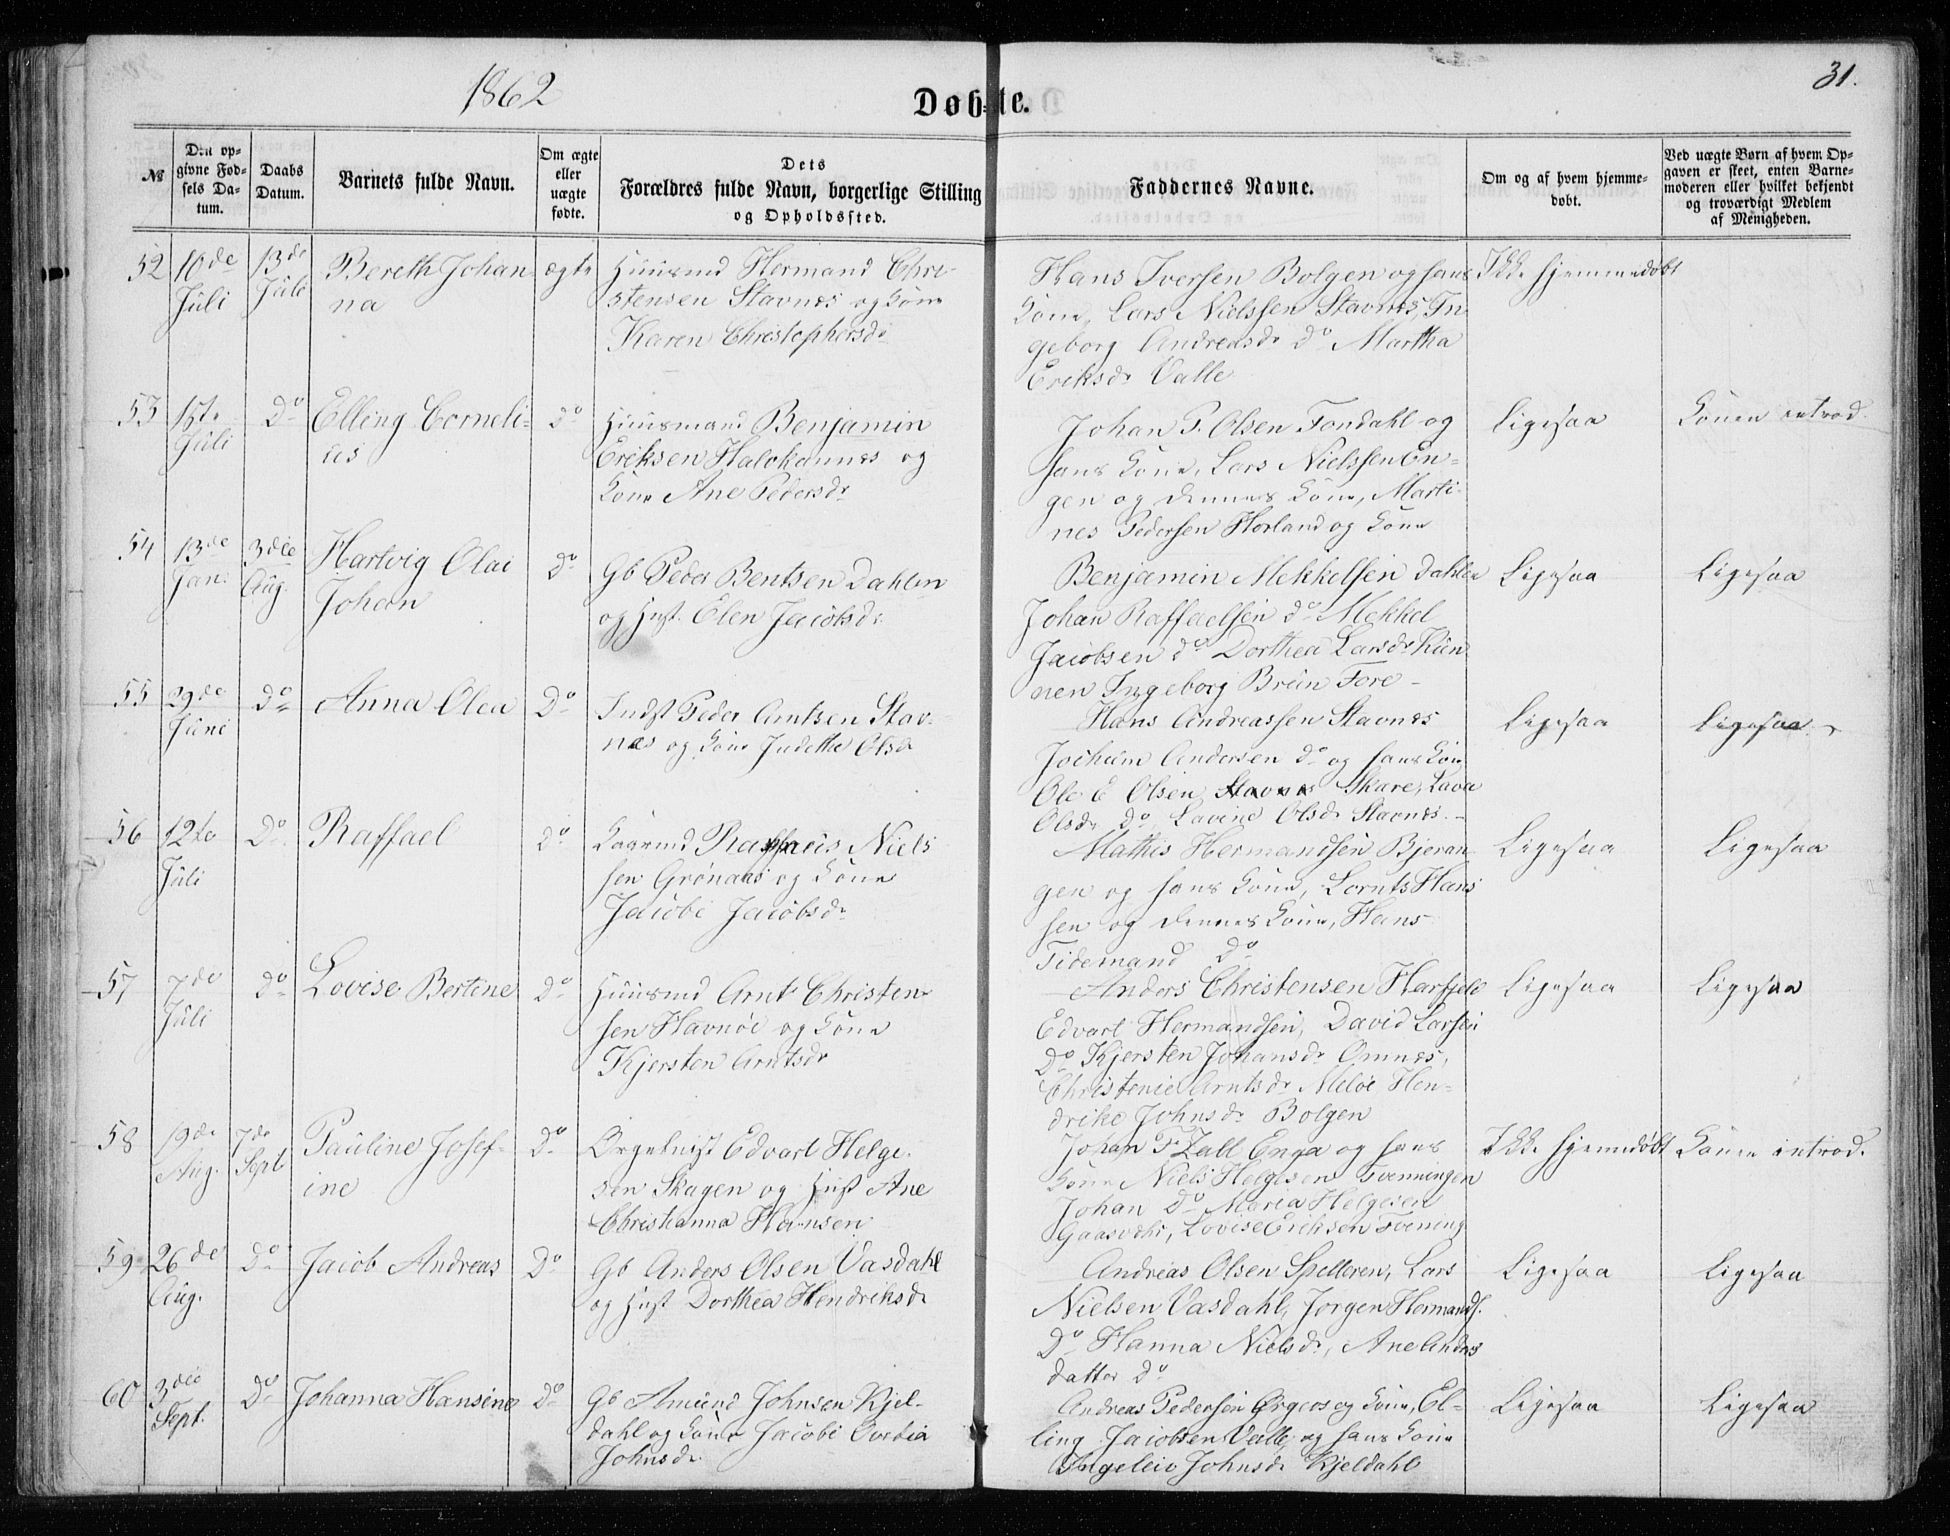 1862
Døb-te.
31.
№
Den op-
givne Fød-
sels Da-
tum.
Daabs
Datum.
Barnets fulde Navn.
Om ægte
eller
uægte
fødte.
Dets
Forældres fulde Navn, borgerlige Stilling
og Opholdssted.
Faddernes Navne.
Om og af hvem hjemme-
døbt.
Ved uægte Børn af hvem Op-
gaven er skeet, enten Barne-
moderen eller hvilket bekjendt
og troværdigt Medlem
af Menigheden.
52
10de
Juli
13de
Juli
Bereth Johan
na
ægte
Huusmd Hermand Chri-
stensen Stavnes og Kone
Karen Christophersdr
Hans Iversen Bolgen og hans
Kone, Lars Nielssen Stavnes, In
geborg Andreasdr do Martha
Eriksdr Valle
Ikke hjemmedøbt
53
15te
Juli
Do
Elling Corneli-
us
do
Huusmand Benjamin
Eriksen Halokannes og
Kone Ane Pedersdr
Johan P. Olsen Fondahl og
hans Kone, Lars Nielssen En-
gen og dennes Kone, Marti-
nes Pedersen Horland og Kone
Ligesaa
Konen introd.
54
13de
Jan.
3die
Aug.
Hartvig Olai
Johan
Do
Gb Peder Bentsen Dahlen
og Hust. Elen Jacobsdr
Benjamin Mekkelsen Dahlen
Johan Raffaelsen do Mekkel
Jacobsen do Dorthea Larsdr Kun
nen Ingeborg Brun Fore-
Ligesaa
Ligesaa
55
29de
Juni
Do
Anna Olea
Do
Indst Peder Arntsen Stav-
nes og Kone Judithe Olsdr
Hans Andreassen Stavnes
Jochum Andersen do og hans Kone
Ole E Olsen Stavnes Skare, Lava
Olsdr do Lavine Olsdr Stavnes.-
Ligesaa
Ligesaa
56
12te
Juli
Do
Raffael
do
Baarmd Raffaeis Niels
sen Grønaas og Kone
Jacobi Jacobsdr
Mathis Hermandsen Bjeran
gen og hans Kone, Lornts Hans
sen og dennes Kone, Hans
Tidemand do
Ligesaa
Ligesaa
57
7de
Juli
Do
Lovise Bertine
Do
Huusmd Arnt Christen-
sen Havnøe og Kone
Kjersten Arntsdr
Anders Christensen Harfjeld
Edvart Hermandsen, David Larsen
Do Kjersten Johansdr Omnes,
Christense Arntsdr Meløe Hen-
drike Johnsdr Bolgen
Ligesaa
Ligesaa
58
19de
Aug.
7de
Sept
Pauline Josef-
ine
Do
Orgelnist Edvart Helge-
sen Skagen og Hust Ane
Christianna Hansen
Johan F Zall Enga og hans
Kone Niels Helgesen Tvenningen
Johan do Maria Helgesen
Gaasvær, Lovise Erikson Tvening
Ikke hjemmedøbt
Konen introd.
59
26de
Aug.
Do
Jacob Andreas
Do
Gb Anders Olsen Vasdahl
og Hust Dorthea Hendriksdr
Andreas Olsen Spelleren, Lars
Nielsen Vasdahl, Jørgen Hermands.
Do Hanna Nielsdr, Ane Anders
datter do
Ligesaa
Ligesaa
60
3die
Sept.
Do
Johanna Hansine
Do
Gb Amund Johnsen Kjel-
dahl og Kone Jacobi Curdia
Johnsdr.
Andreas Pedersen Ørgeos og Kone, El-
ling Jacobsen Valle og hans Kone
Ingeleiv Johnsdr Kjeldahl
Ligesaa
Ligesaa